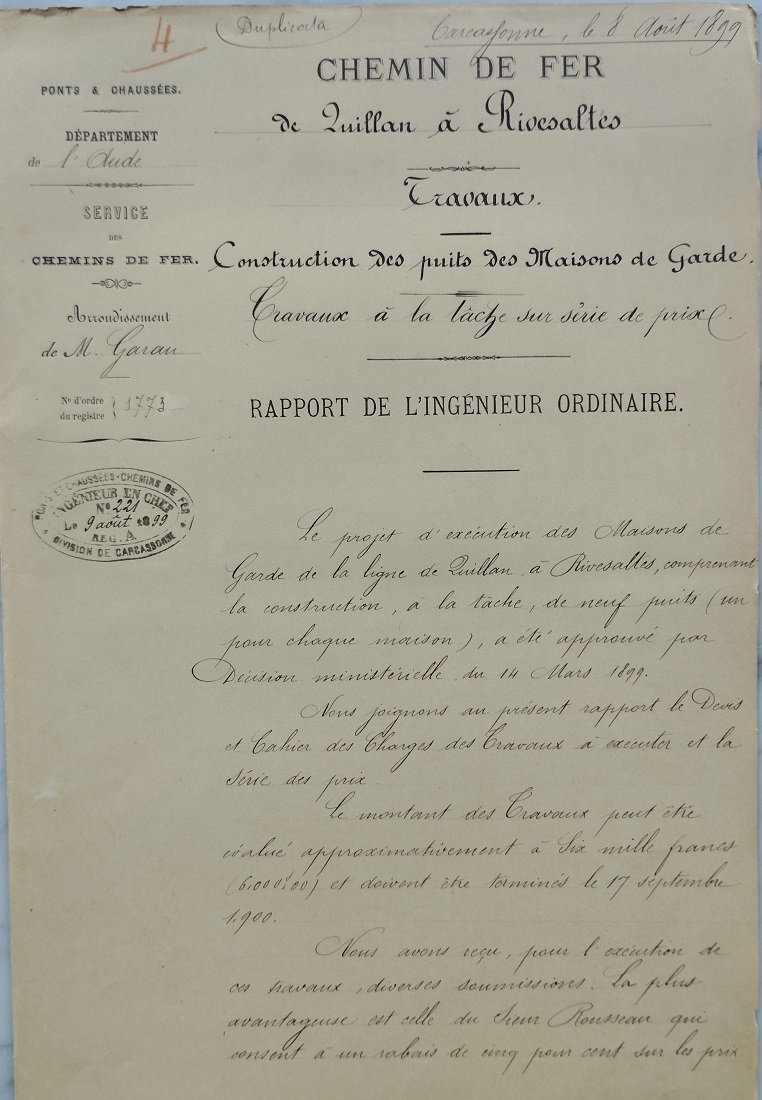 4
Duplicata
Carcassonne, le 8 Août 1899
PONTS & CHAUSSÉES.
DÉPARTEMENT
de l'Aude
SERVICE
DES
CHEMINS DE FER.
Arrondissement
de M. Garau
Nº d'ordre
du registre } 1773
PONTS ET CHAUSSÉES-CHEMINS DE FER
INGÉNIEUR EN CHEF
Nº 221
Le 9 août 1899
REG. A
DIVISION DE CARCASSONNE
CHEMIN DE FER
de Quillan à Rivesaltes
Travaux.
Construction des puits des Maisons de Garde.
Travaux à la tâche sur série de prix.
RAPPORT DE L'INGÉNIEUR ORDINAIRE.
Le projet d'exécution des Maisons de
Garde de la ligne de Quillan à Rivesaltes, comprenant
la construction, à la tâche, de neuf puits (un
pour chaque maison), a été approuvé par
Décision ministérielle du 14 Mars 1899.
Nous joignons au présent rapport le Devis
et Cahier des Charges des Travaux à exécuter et la
Série des prix.
Le montant des Travaux peut être
évalué approximativement à Six mille francs
(6.000f,00) et doivent être terminés le 17 septembre
1.900.
Nous avons reçu, pour l'exécution de
ces travaux, diverses soumissions. La plus
avantageuse est celle du Sieur Rousseau qui
consent à un rabais de cinq pour cent sur les prix